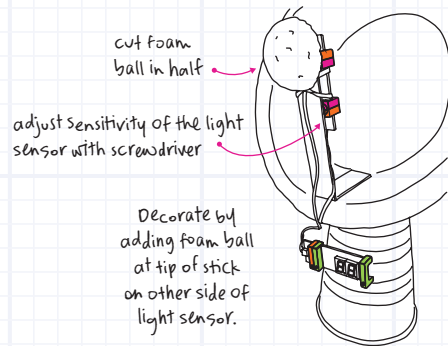 cut foam
ball in half
adjust sensitivity of the light
sensor with screwdriver
Decorate by
adding foam ball
at tip of stick
on other side of
light sensor.
88